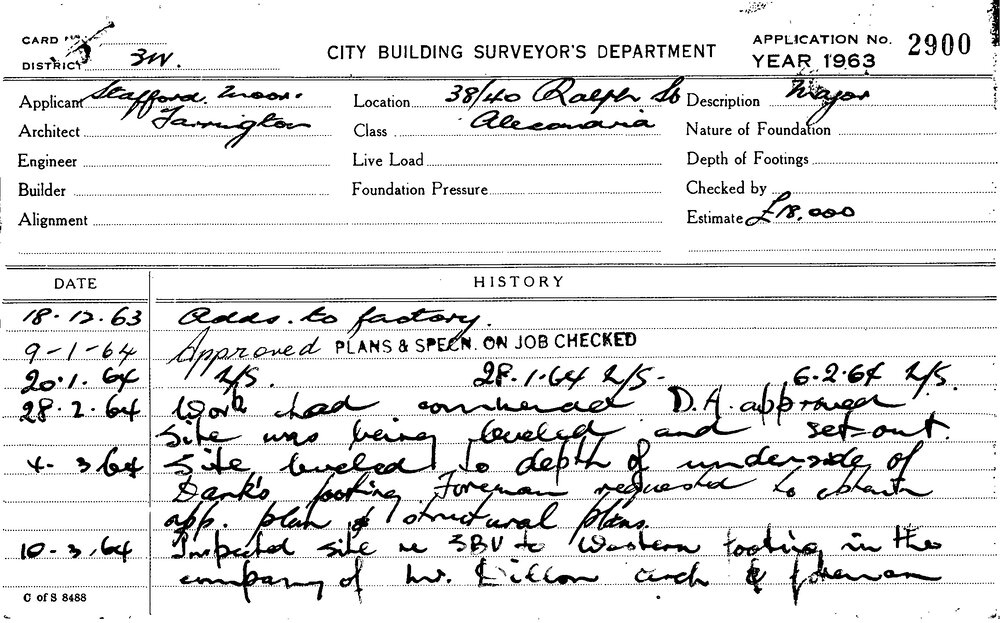 CARD No.
DISTRICT 3W.
CITY BUILDING SURVEYOR'S DEPARTMENT
APPLICATION No. 2900
YEAR 1963
Applicant Stafford. Moor. Location 38/40 Ralph St Description Major
Architect Farrington Class Alexandria Nature of Foundation
Engineer Live Load Depth of Footings
Builder Foundation Pressure Checked by
Alignment Estimate £18,000
DATE HISTORY
18.12.63 Adds. to factory.
9-1-64 Approved PLANS & SPECN. ON JOB CHECKED
20.1.64 N/S. 28.1.64 N/S- 6.2.64 N/S.
28.2.64 Work had commenced D.A. approved
Site was being leveled and set-out.
4-3/64 Site leveled to depth of underside of
footing. Foreman requested to obtain
app. plan & structural plans.
10-3.64 Inspected site re SBV to Western footing in the
company of Mr. Dillon arch & foreman
C of S 8488